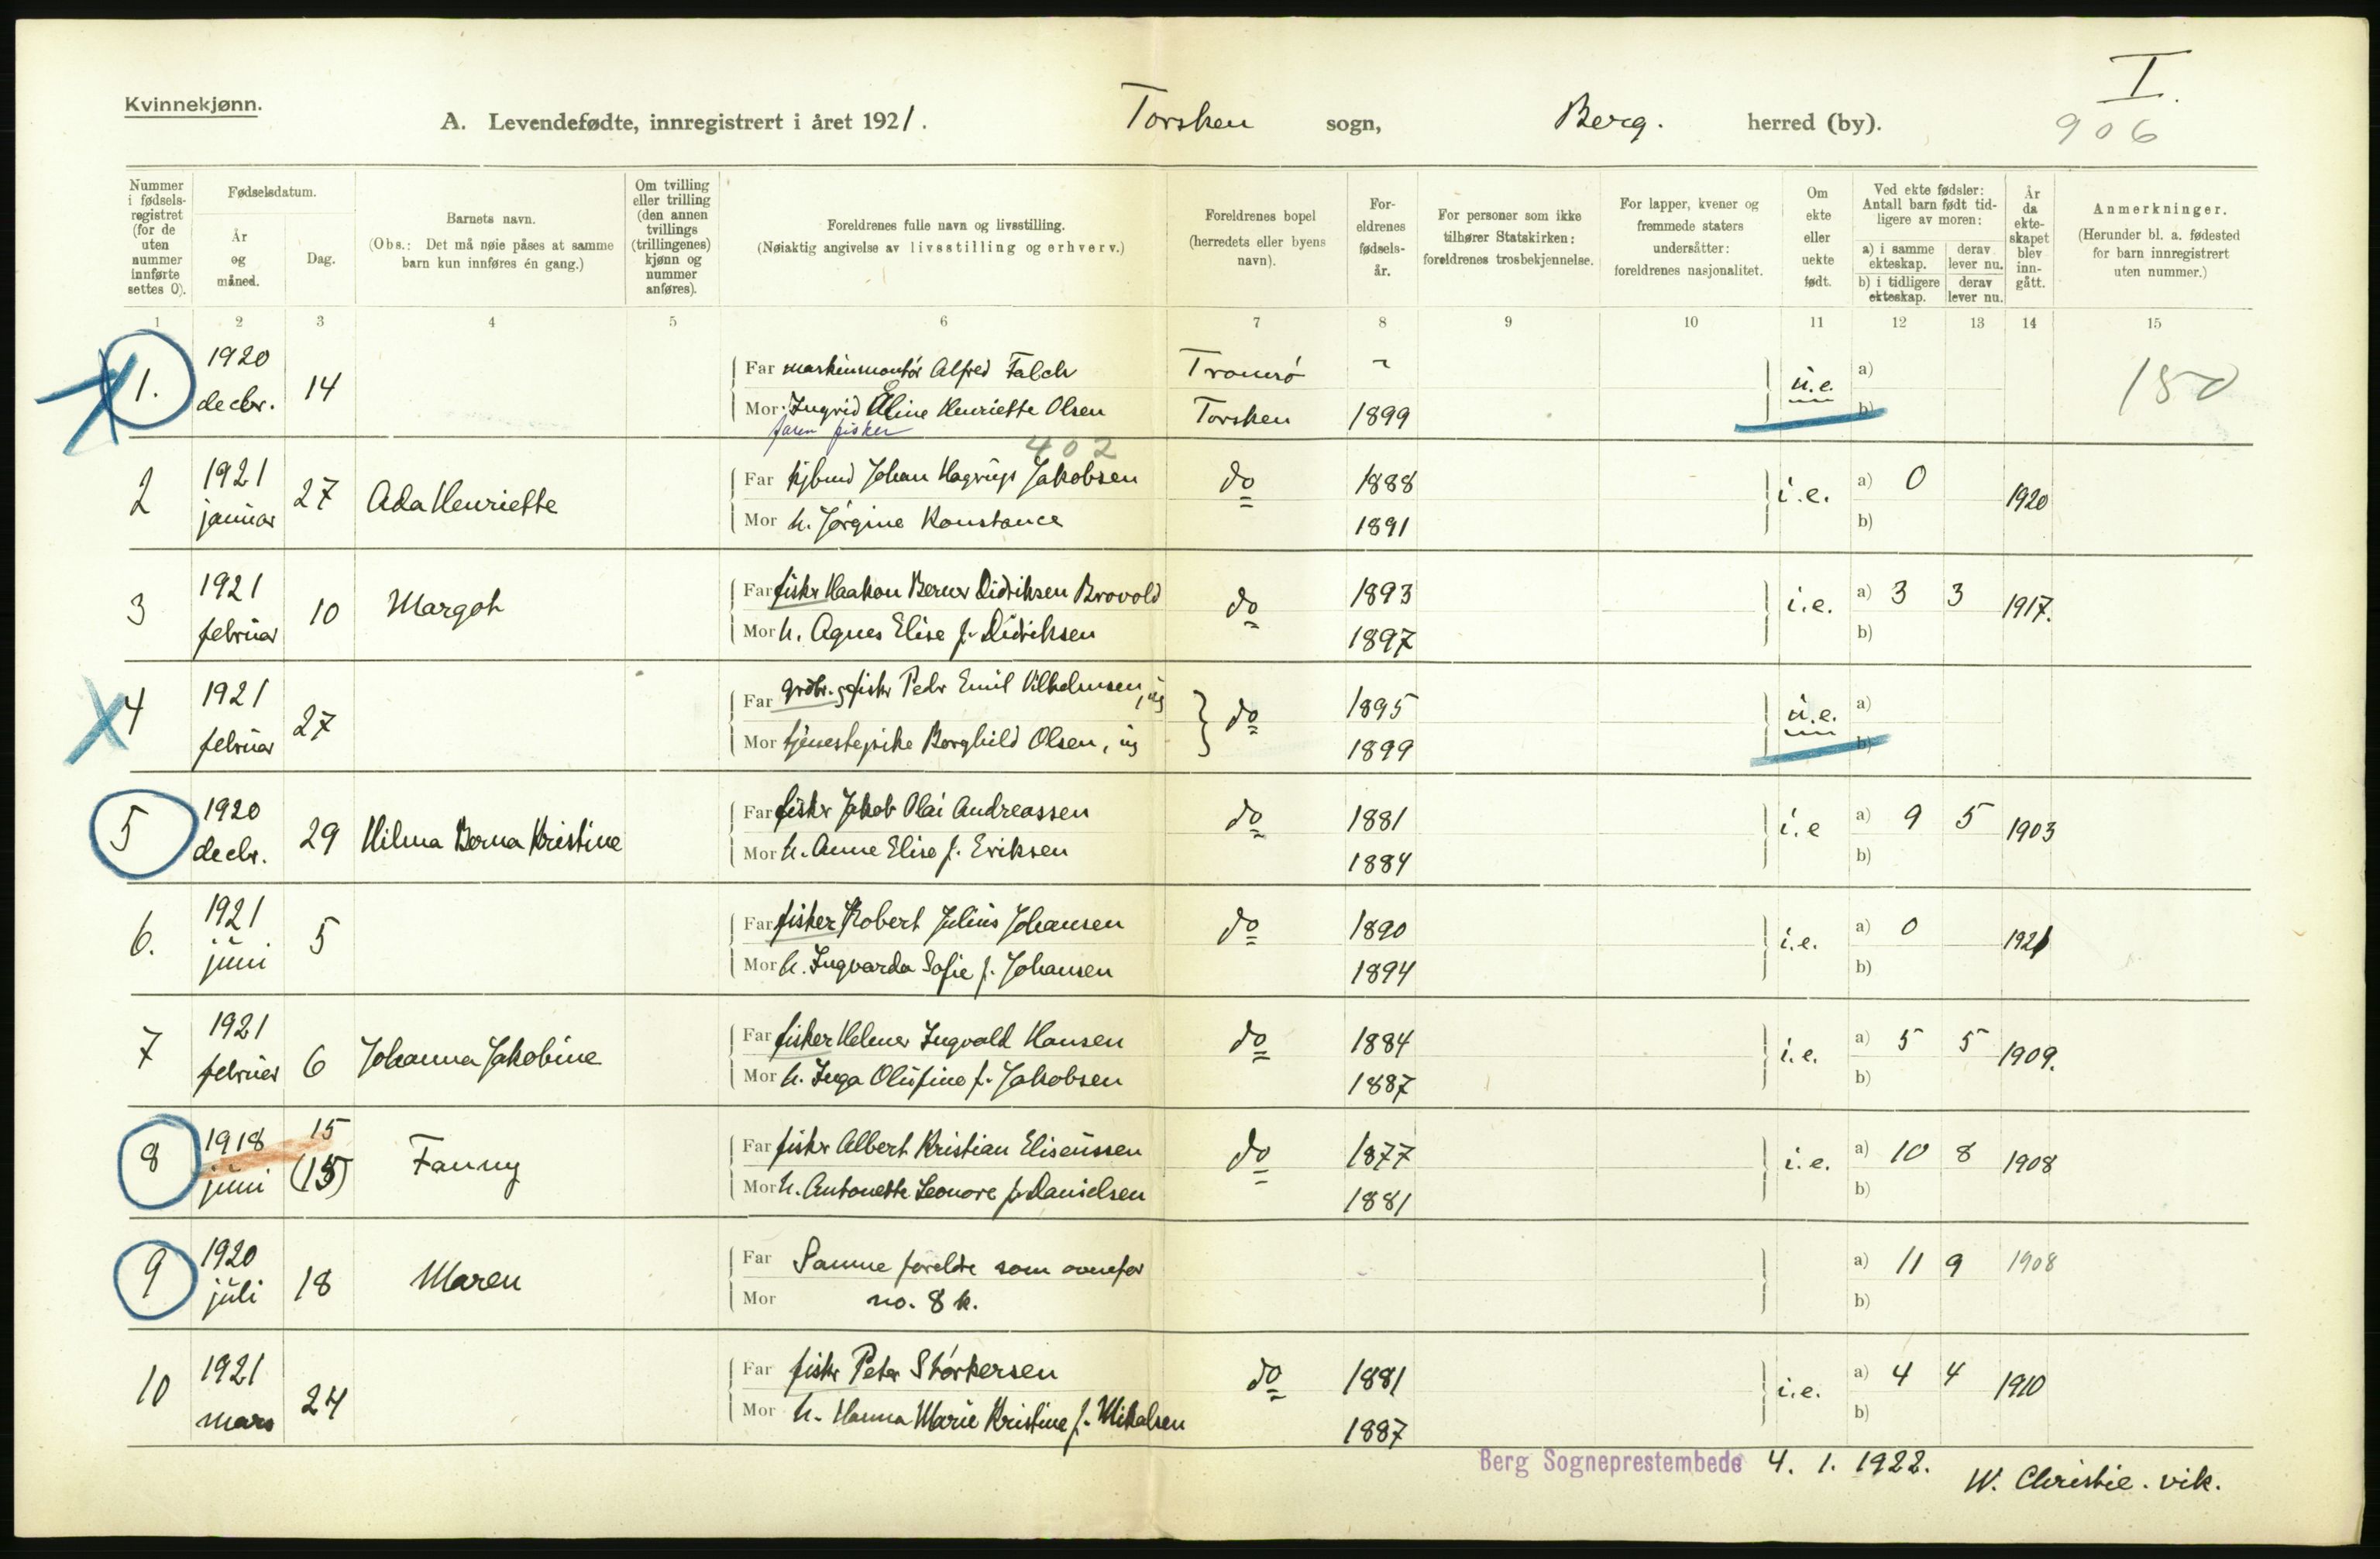 Kvinnekjønn.
A. Levendefødte, innregistrert i året 1921. Torsken sogn, Berg. herred (by).
I.
906
Nummer i fødselsregistret (for de uten nummer innførte settes 0).
Fødselsdatum.
År og måned.
Dag.
Barnets navn.
(Obs.: Det må nøie påses at samme barn kun innføres én gang.)
Om tvilling eller trilling (den annen tvillings (trillingenes) kjønn og nummer anføres).
Foreldrenes fulle navn og livsstilling.
(Nøiaktig angivelse av livsstilling og erhverv.)
Foreldrenes bopel (herredets eller byens navn).
Foreldrenes fødselsår.
For personer som ikke tilhører Statskirken: foreldrenes trosbekjennelse.
For lapper, kvener og fremmede staters undersåtter: foreldrenes nasjonalitet.
Om ekte eller uekte født.
Ved ekte fødsler: Antall barn født tidligere av moren:
a) i samme ekteskap. derav lever nu.
b) i tidligere ekteskap. derav lever nu.
År da ekteskapet blev inngått.
Anmerkninger.
(Herunder bl. a. fødested for barn innregistrert uten nummer.)
1 2 3 4 5 6 7 8 9 10 11 12 13 14 15
1. 1920 decbr. 14
Far maskinmontør Alfred Falch Tromsø
Mor Ingrid Eline Henriette Olsen Torsken 1899
faren fisker
u.e. a) b) 150
402
2 1921 januar 27 Ada Henriette
Far Johan Hagrup Jakobsen do 1888
Mor h. Jørgine Konstance 1891
i.e. a) 0 b) 1920
3 1921 februar 10 Margoh
Far fisker Haakon Berner Didriksen Brovold do 1893
Mor h. Agnes Elise f. Didriksen 1897
i.e. a) 3 3 b) 1917.
4 1921 februar 27
Far fisker Peder Emil Vilhelmsen, ug do 1895
Mor tjenestepike Borghild Olsen, ug 1899
u.e. a) b)
5 1920 decbr. 29 Hilma Berna Kristine
Far fisker Jakob Olai Andreassen do 1881
Mor h. Anne Elise f. Eriksen 1884
i.e a) 9 5 b) 1903
6. 1921 juni 5
Far fisker Robert Julius Johansen do 1890
Mor h. Ingvarda Sofie f. Johansen 1894
i.e. a) 0 b) 1921
7 1921 februar 6 Johanna Jakobine
Far fisker Helmer Ingvald Hansen do 1884
Mor h. Inga Olufine f. Jakobsen 1887
i.e. a) 5 5 b) 1909.
8 1918 juni 15 (15) Fanny
Far fisker Albert Kristian Eliseussen do 1877
Mor h. Antonette Leonore f. Danielsen 1881
i.e. a) 10 8 b) 1908
9 1920 juli 18 Maren
Far Samme foreldre som ovenfor
Mor no. 8 k.
a) 11 9 b) 1908
10 1921 mars 24
Far fisker Peter Størkersen do 1881
Mor h. Hanna Marie Kristine f. Mikalsen 1887
i.e. a) 4 4 b) 1910
Berg Sogneprestembede 4. 1. 1922. W. Christie. vik.